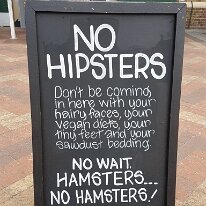 NO
HIPSTERS
Don't be coming
in here with your
hairy faces, your
vegan diets, your
tiny feet and your
sawdust bedding.
NO WAIT.
HAMSTERS...
NO HAMSTERS!